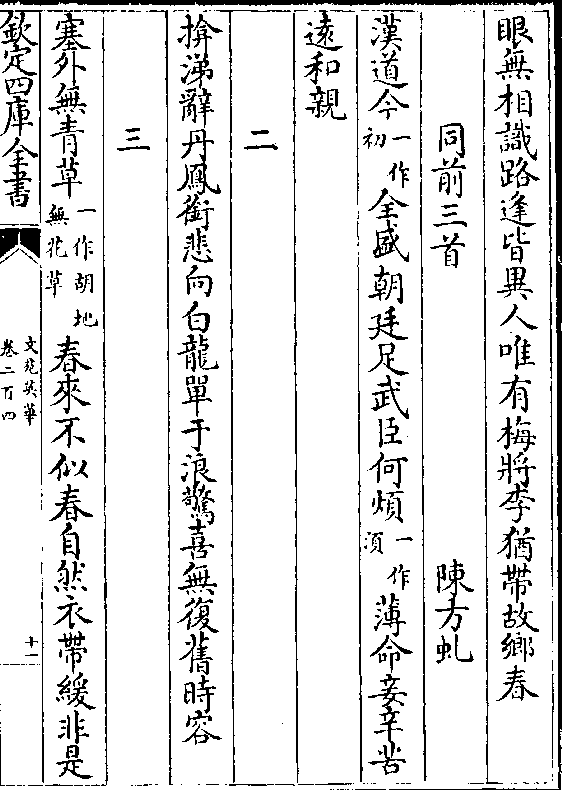 眼無相識路逢皆異人唯有梅將李猶帶故鄉春
同前三首　陳方虬
漢道今一作初全盛朝廷足武臣何煩一作須薄命妾辛苦
遠和親
二
揜涕辭丹鳳銜悲向白龍單于浪驚喜無復舊時容
三
塞外無青草一作胡地無花草春來不似春自然衣帶緩非是
欽定四庫全書
文苑英華
卷二百四
十一